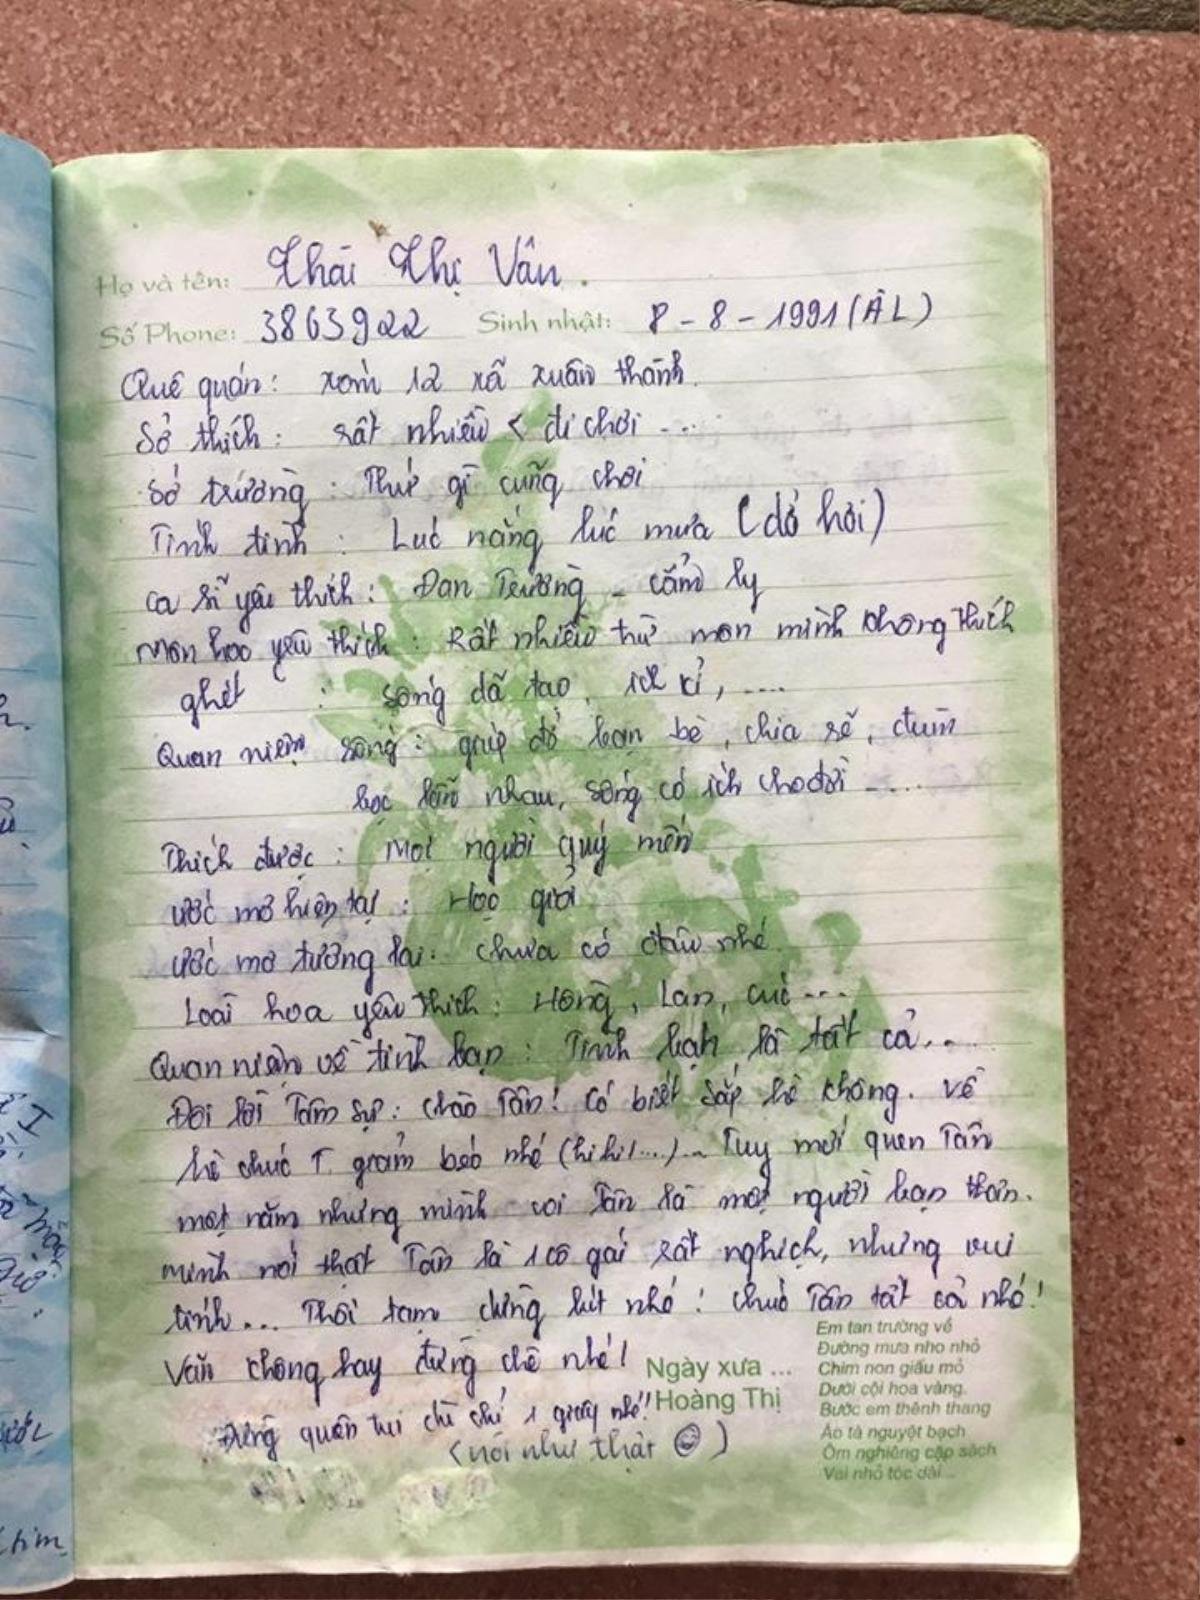 Họ và tên: Thái Thị Vân.
Số Phone: 3863922 Sinh nhật: 8 - 8 - 1991 (ÂL)
Quê quán: xóm 12 xã xuân thành.
Sở thích: rất nhiều < đi chơi ...
Sở trường: Thứ gì cũng chơi
Tính tình: Lúc nắng lúc mưa (dở hơi)
ca sĩ yêu thích: Đan Trường - cẩm ly
Môn học yêu thích: Rất nhiều trừ môn mình không thích
ghét : sống dã tạo, ích kỉ, ....
Quan niệm sống: giúp đỡ bạn bè, chia sẽ, đùm
bọc lẫn nhau, sống có ích cho đời .....
Thích được: Mọi người quý mến
ước mơ hiện tại: Học giỏi
ước mơ tương lai: chưa có đâu nhé
Loài hoa yêu thích: Hồng, Lan, cúc ...
Quan niệm về tình bạn: Tình bạn là tất cả...
Đôi lời Tâm sự: chào Tân! Có biết sắp hè không. Về
hè chúc T. giảm béo nhé (hihi!....)... Tuy mới quen Tân
một năm nhưng mình coi Tân là một người bạn thân.
mình nói thật Tân là 1 cô gái rất nghịch, nhưng vui
tính... Thôi tạm dừng bút nhé! chúc Tân tất cả nhé!
Văn không hay đừng chê nhé!
Đừng quên tui dù chỉ 1 giây nhé!!
(nói như thật ☺)
Ngày xưa ...
Hoàng Thị
Em tan trường về
Đường mưa nho nhỏ
Chim non giấu mỏ
Dưới cội hoa vàng.
Bước em thênh thang
Áo tà nguyệt bạch
Ôm nghiêng cặp sách
Vai nhỏ tóc dài...